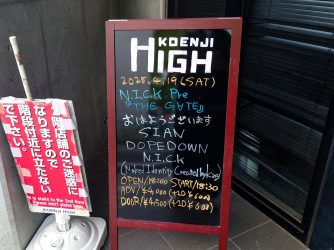 KOENJI
HIGH
2025.4.19 (SAT)
N.I.C.K Pre
『THE GATE』
おはようございます
SIAN
DOPEDOWN
N.I.C.K
(Naked Identity Created by King)
OPEN/18:00 START/18:30
ADV/¥4,000 (+1D ¥600)
DOOR/¥4,500 (+1D ¥600)
階店舗のご迷惑に
なりますので
階段付近に立たない
で下さい。
It stairs to the 2nd floor
Please don't stand here.
KOENJI HIGH